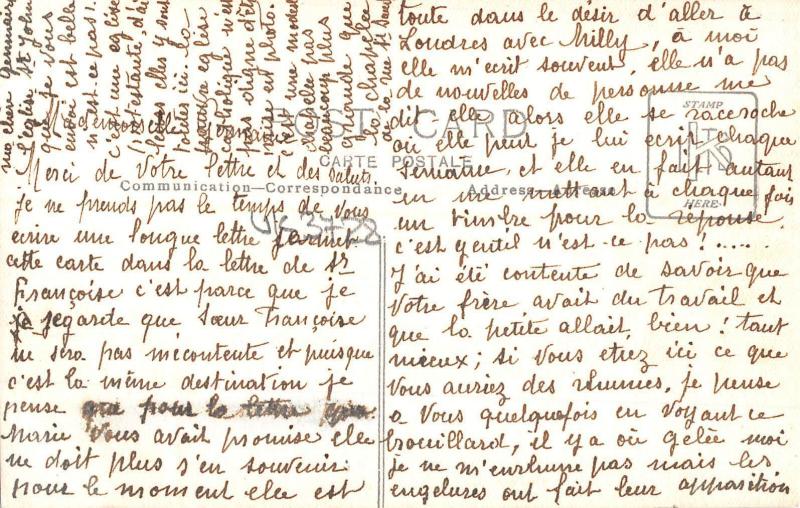 Mademoiselle Germaine
Merci de Votre lettre et des saluts,
je ne prends pas le temps de vous
ecrire une longue lettre
cette carte dans la lettre de Sr
Françoise c'est parce que je
regarde que Sœur Françoise
ne sera pas mécontente et puisque
c'est la même destination je
pense que pour la lettre que
Marie Vous avait promise elle
ne doit plus s'en souvenir
pour le moment elle est
toute dans le désir d'aller à
Londres avec Milly, à moi
elle m'ecrit souvent, elle n'a pas
de nouvelles de personne me
dit-elle alors elle se raccroche
où elle peut je lui ecrit chaque
semaine, et elle en fait autant
en me mettant à chaque fois
un timbre pour la réponse
c'est gentil n'est-ce pas !.....
J'ai été contente de savoir que
Votre frère avait du travail et
que la petite allait bien ! tant
mieux ; si vous etiez ici ce que
vous auriez des rhumes, je pense
a vous quelquefois en voyant ce
brouillard, il y a où gelée moi
je ne m'enrhume pas mais les
engelures ont fait leur apparition
ma chère Germaine
l'église St John
que je vous
envoi est belle
n'est ce pas !
c'est une eglise
protestante, d'ai
les elles y sont
toutes ici la
pauvre eglise
catholique n'est
pas digne d'être
mise en photo.
c'est une modeste
chapelle pas
beaucoup plus
grande que
la chapelle
de la rue St
POST CARD
CARTE POSTALE
Communication-Correspondance
Address-Adresse
STAMP
HERE